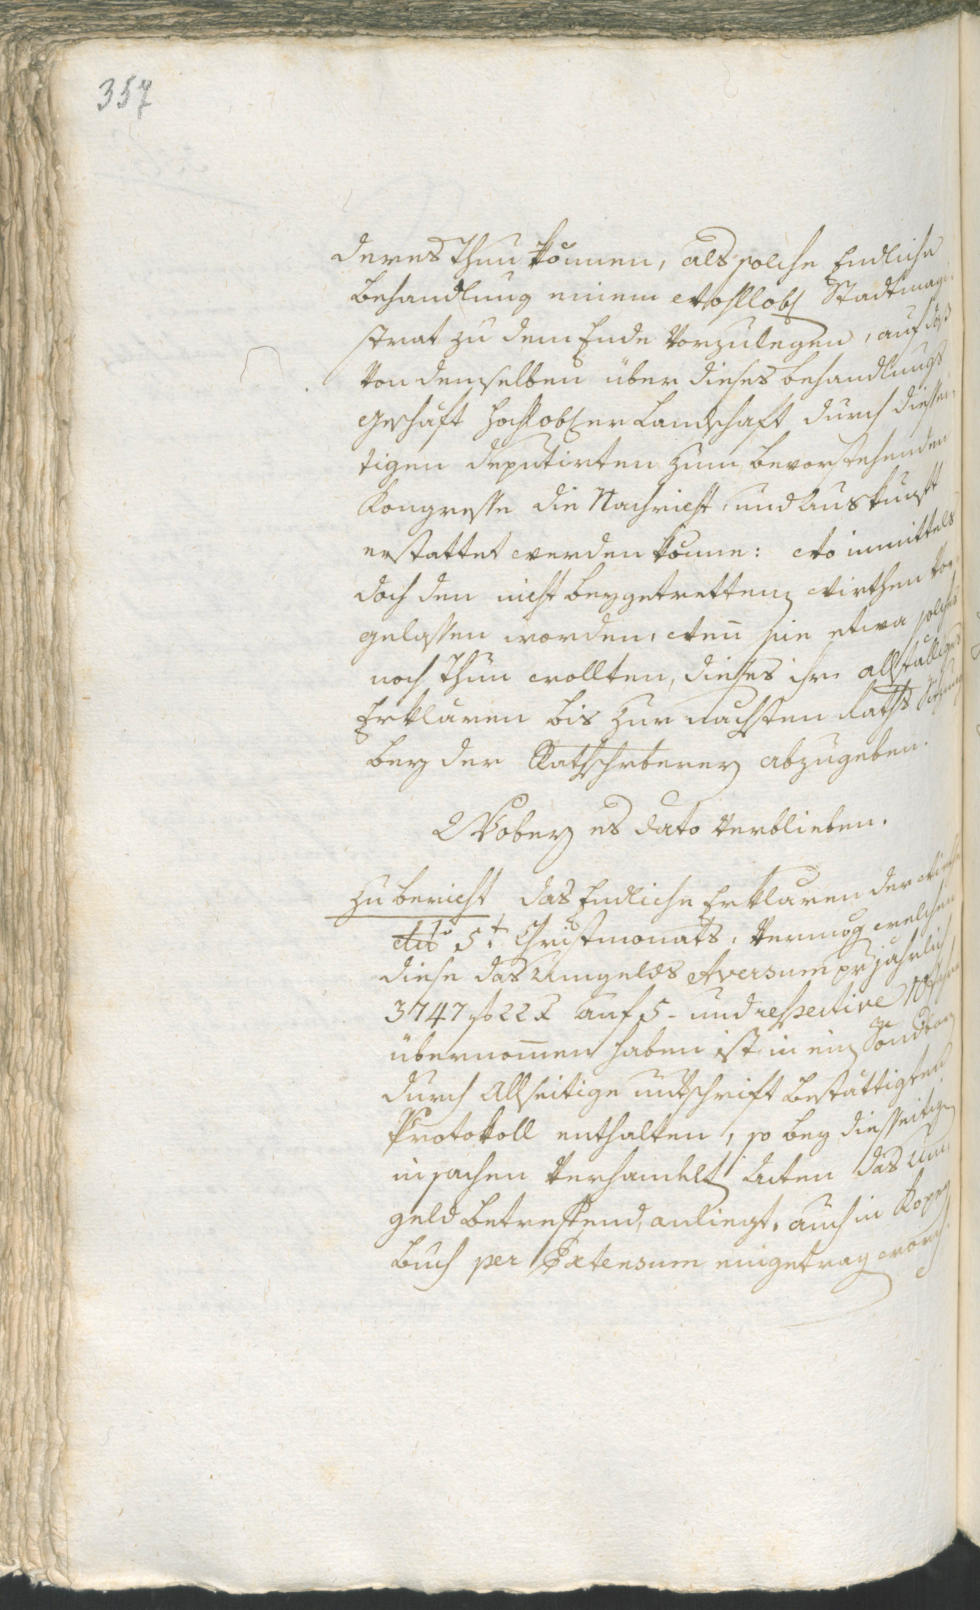 357
deres thun können, als solche Endliche
behandlung einem Wohllobl Stadtmagi
strat zu dem Ende vorzulegen, auf daß
von demselben über dieses behandlungs
geschäft hochlobler Landschaft durch diessei
tigen deputirten zum bevorstehenden
Kongresse die Nachricht und Auskunft
erstattet werden könne: Wo inmittels
doch den nicht beygetrettenen Wirthen vor
gelassen worden, Wenn sie etwa solches
noch thun wollten, dieses ihr allfälliges
Erklären bis zur nächsten Raths Sitzung
bey der Rathschrberey abzugeben.
Wobey es dato verblieben.
Zu bericht das Endliche Erklären der Wirthe
ddo 5t Christmonats, vermög welchen
diese das Umgelds Aversum pr jährlich
3747 f 22 x auf 5- und respective 10 Jahre
übernommen haben ist in ein
durch Allseitige untschrift bestättigten
Protokoll enthalten, so bey diesseitigen
in sachen verhandelt Acten das Um
geld betreffend, anliegt, auch in Kopey
buch per Extensum eingetrag word